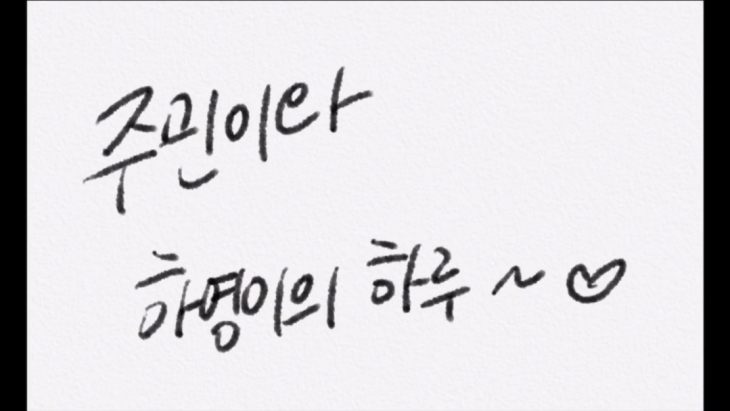 주민이와
하영이의 하루 ~ ♡